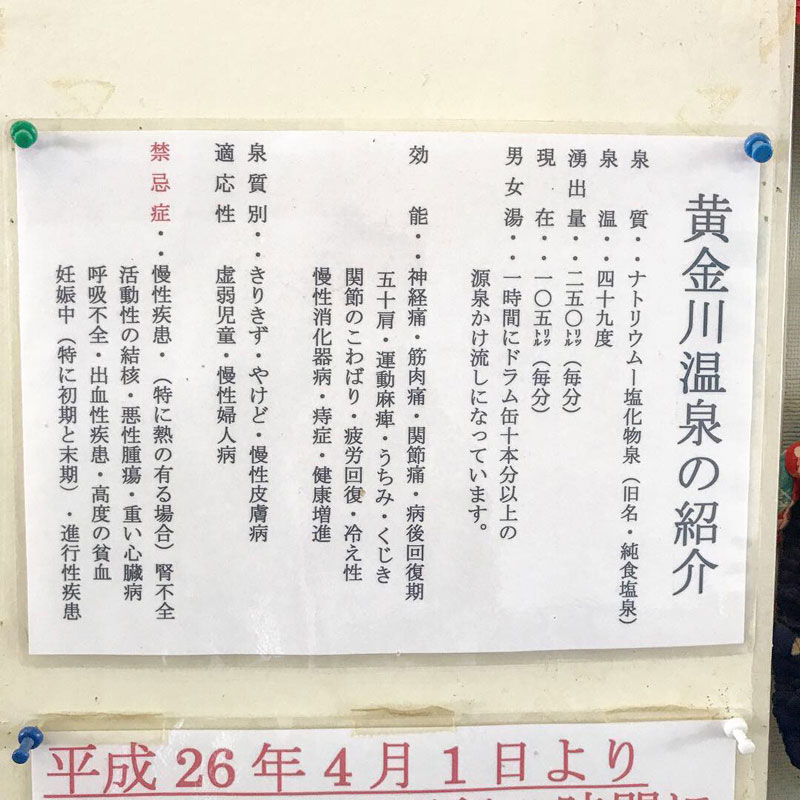 黄金川温泉の紹介
泉質・・ナトリウムー塩化物泉（旧名・純食塩泉）
泉温・・四十九度
湧出量・・二五〇㍑（毎分）
現在・・一〇五㍑（毎分）
男女湯・・一時間にドラム缶十本分以上の
源泉かけ流しになっています。
効能・・神経痛・筋肉痛・関節痛・病後回復期
五十肩・運動麻痺・うちみ・くじき
関節のこわばり・疲労回復・冷え性
慢性消化器病・痔症・健康増進
泉質別・・きりきず・やけど・慢性皮膚病
適応性 虚弱児童・慢性婦人病
禁忌症・・慢性疾患・（特に熱の有る場合）腎不全
活動性の結核・悪性腫瘍・重い心臓病
呼吸不全・出血性疾患・高度の貧血
妊娠中（特に初期と末期）・進行性疾患
平成26年4月1日より